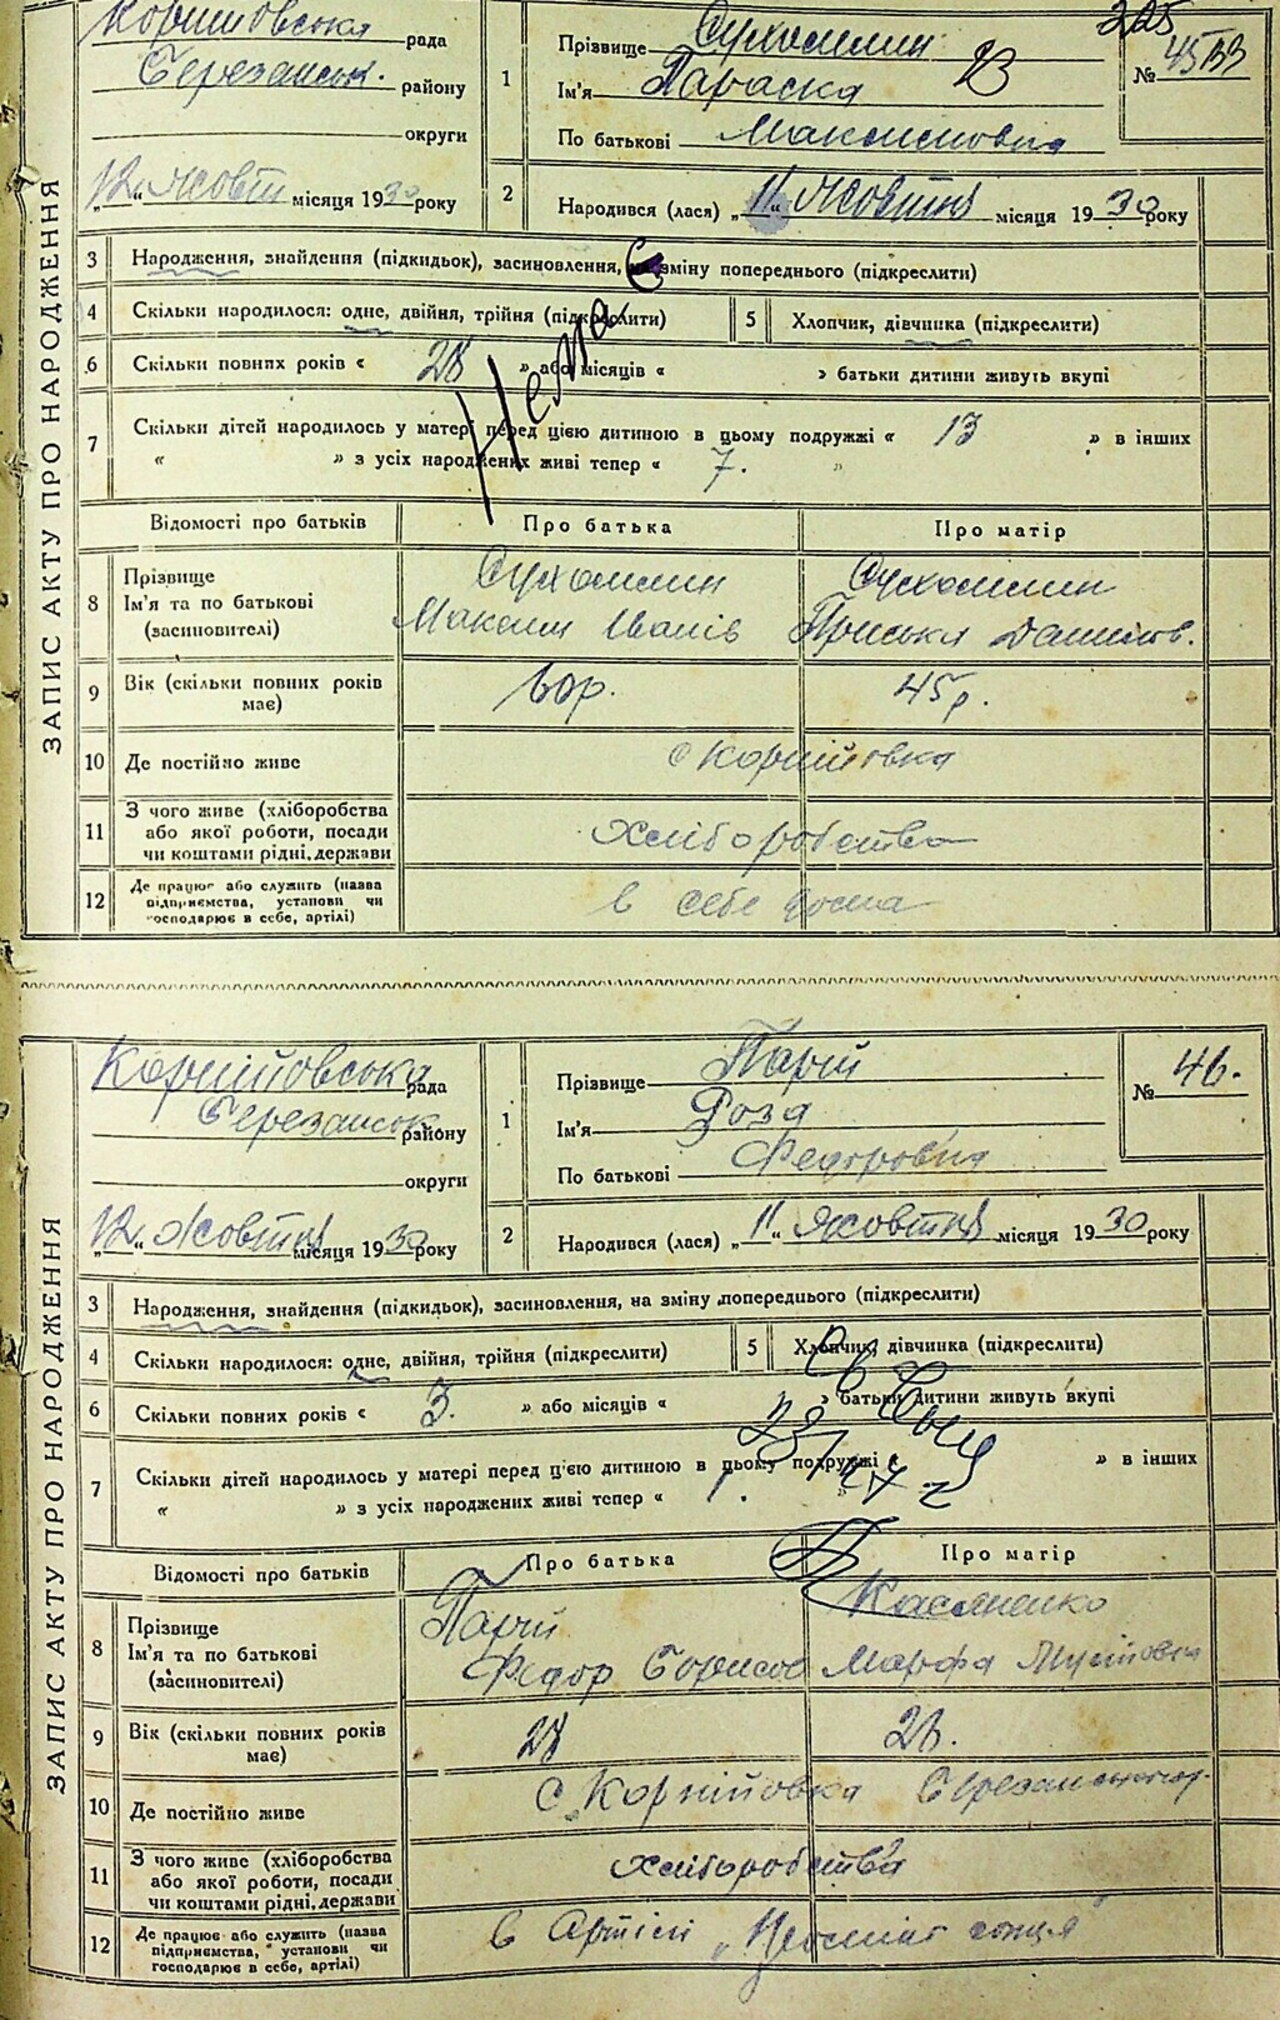 ЗАПИС АКТУ ПРО НАРОДЖЕННЯ
Корнійовська рада
Березанськ. району
округи
12 Жовтн місяця 1930 року
1
Прізвище Сухомлин
Ім'я Параска
По батькові Максимовна
325
№ 45
2
Народився (лася) „11“ Жовтня місяця 1930 року
3 Народження, знайдення (підкидьок), засиновлення, на зміну попереднього (підкреслити)
4 Скільки народилося: одне, двійня, трійня (підкреслити)
5 Хлопчик, дівчинка (підкреслити)
6 Скільки повних років « 28 » або місяців « » батьки дитини живуть вкупі
Нема
7 Скільки дітей народилось у матері перед цією дитиною в цьому подружжі « 13 » в інших
« » з усіх народжених живі тепер « 7. »
Відомості про батьків Про батька Про матір
8 Прізвище Сухомлин Сухомлин
Ім'я та по батькові Максим Іванів Приська Данилов.
(засиновителі)
9 Вік (скільки повних років має) 60р. 45р.
10 Де постійно живе с Корнійовка
11 З чого живе (хліборобства
або якої роботи, посади
чи коштами рідні, держави
хліборобство
12 Де працює або служить (назва
підприємства, установи чи
господарює в себе, артілі)
в себе дома
ЗАПИС АКТУ ПРО НАРОДЖЕННЯ
Корнійовська рада
Березанськ. району
округи
12 Жовтня місяця 1930 року
1
Прізвище Парій
Ім'я Роза
По батькові Федоровна
№ 46.
2
Народився (лася) „11“ Жовтня місяця 1930 року
3 Народження, знайдення (підкидьок), засиновлення, на зміну попереднього (підкреслити)
4 Скільки народилося: одне, двійня, трійня (підкреслити)
5 Хлопчик, дівчинка (підкреслити)
6 Скільки повних років « 3. » або місяців « » батьки дитини живуть вкупі
7 Скільки дітей народилось у матері перед цією дитиною в цьому подружжі « » в інших
« » з усіх народжених живі тепер « 1. »
Відомості про батьків Про батька Про матір
8 Прізвище Парій Касяненко
Ім'я та по батькові Федор Борисов Марфа
(засиновителі)
9 Вік (скільки повних років має) 28 26.
10 Де постійно живе с. Корнійовка
11 З чого живе (хліборобства
або якої роботи, посади
чи коштами рідні, держави
хліборобства
12 Де працює або служить (назва
підприємства, установи чи
господарює в себе, артілі)
в Артілі „Промінь сонця“